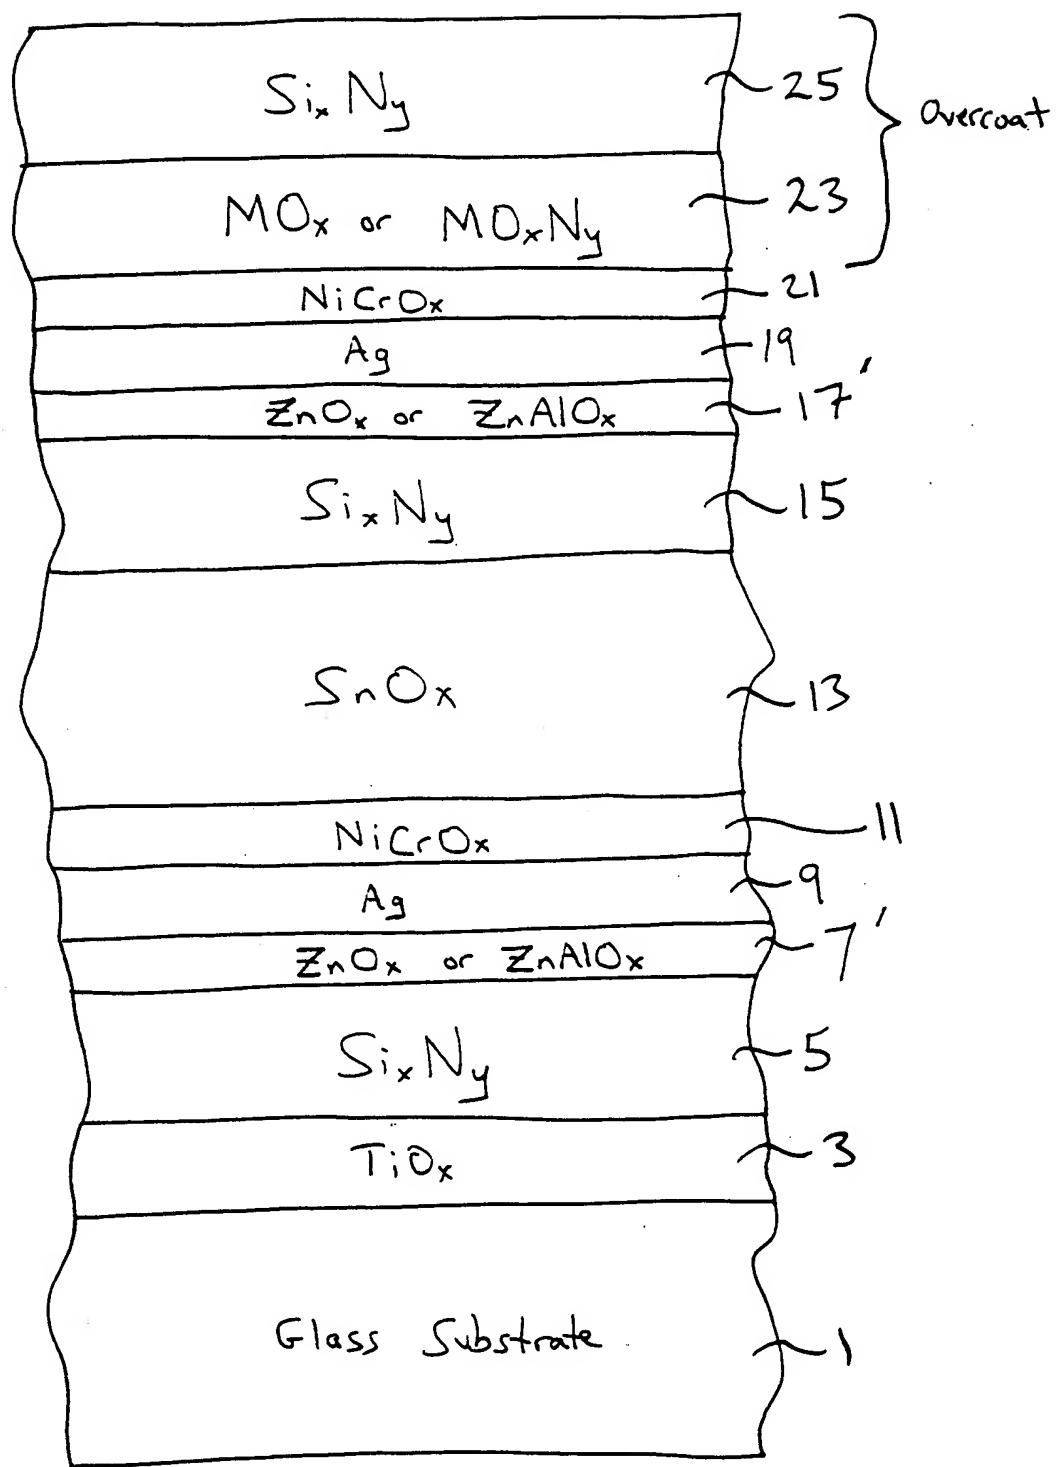 SiₓNy 25 Overcoat
MOₓ or MOₓNy 23
NiCrOₓ 21
Ag 19
ZnOₓ or ZnAlOₓ 17'
SiₓNy 15
SnOₓ 13
NiCrOₓ 11
Ag 9
ZnOₓ or ZnAlOₓ 7'
SiₓNy 5
TiOₓ 3
Glass Substrate 1